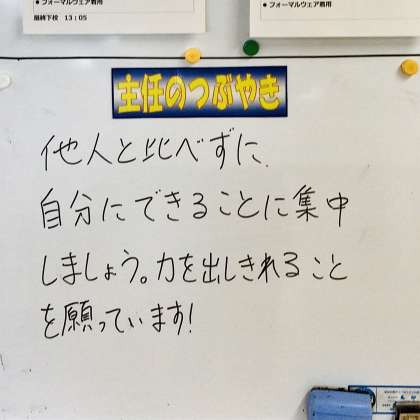 ● フォーマルウェア着用
最終下校 13:05
● フォーマルウェア着用
主任のつぶやき
他人と比べずに、
自分にできることに集中
しましょう。力を出しきれること
を願っています!